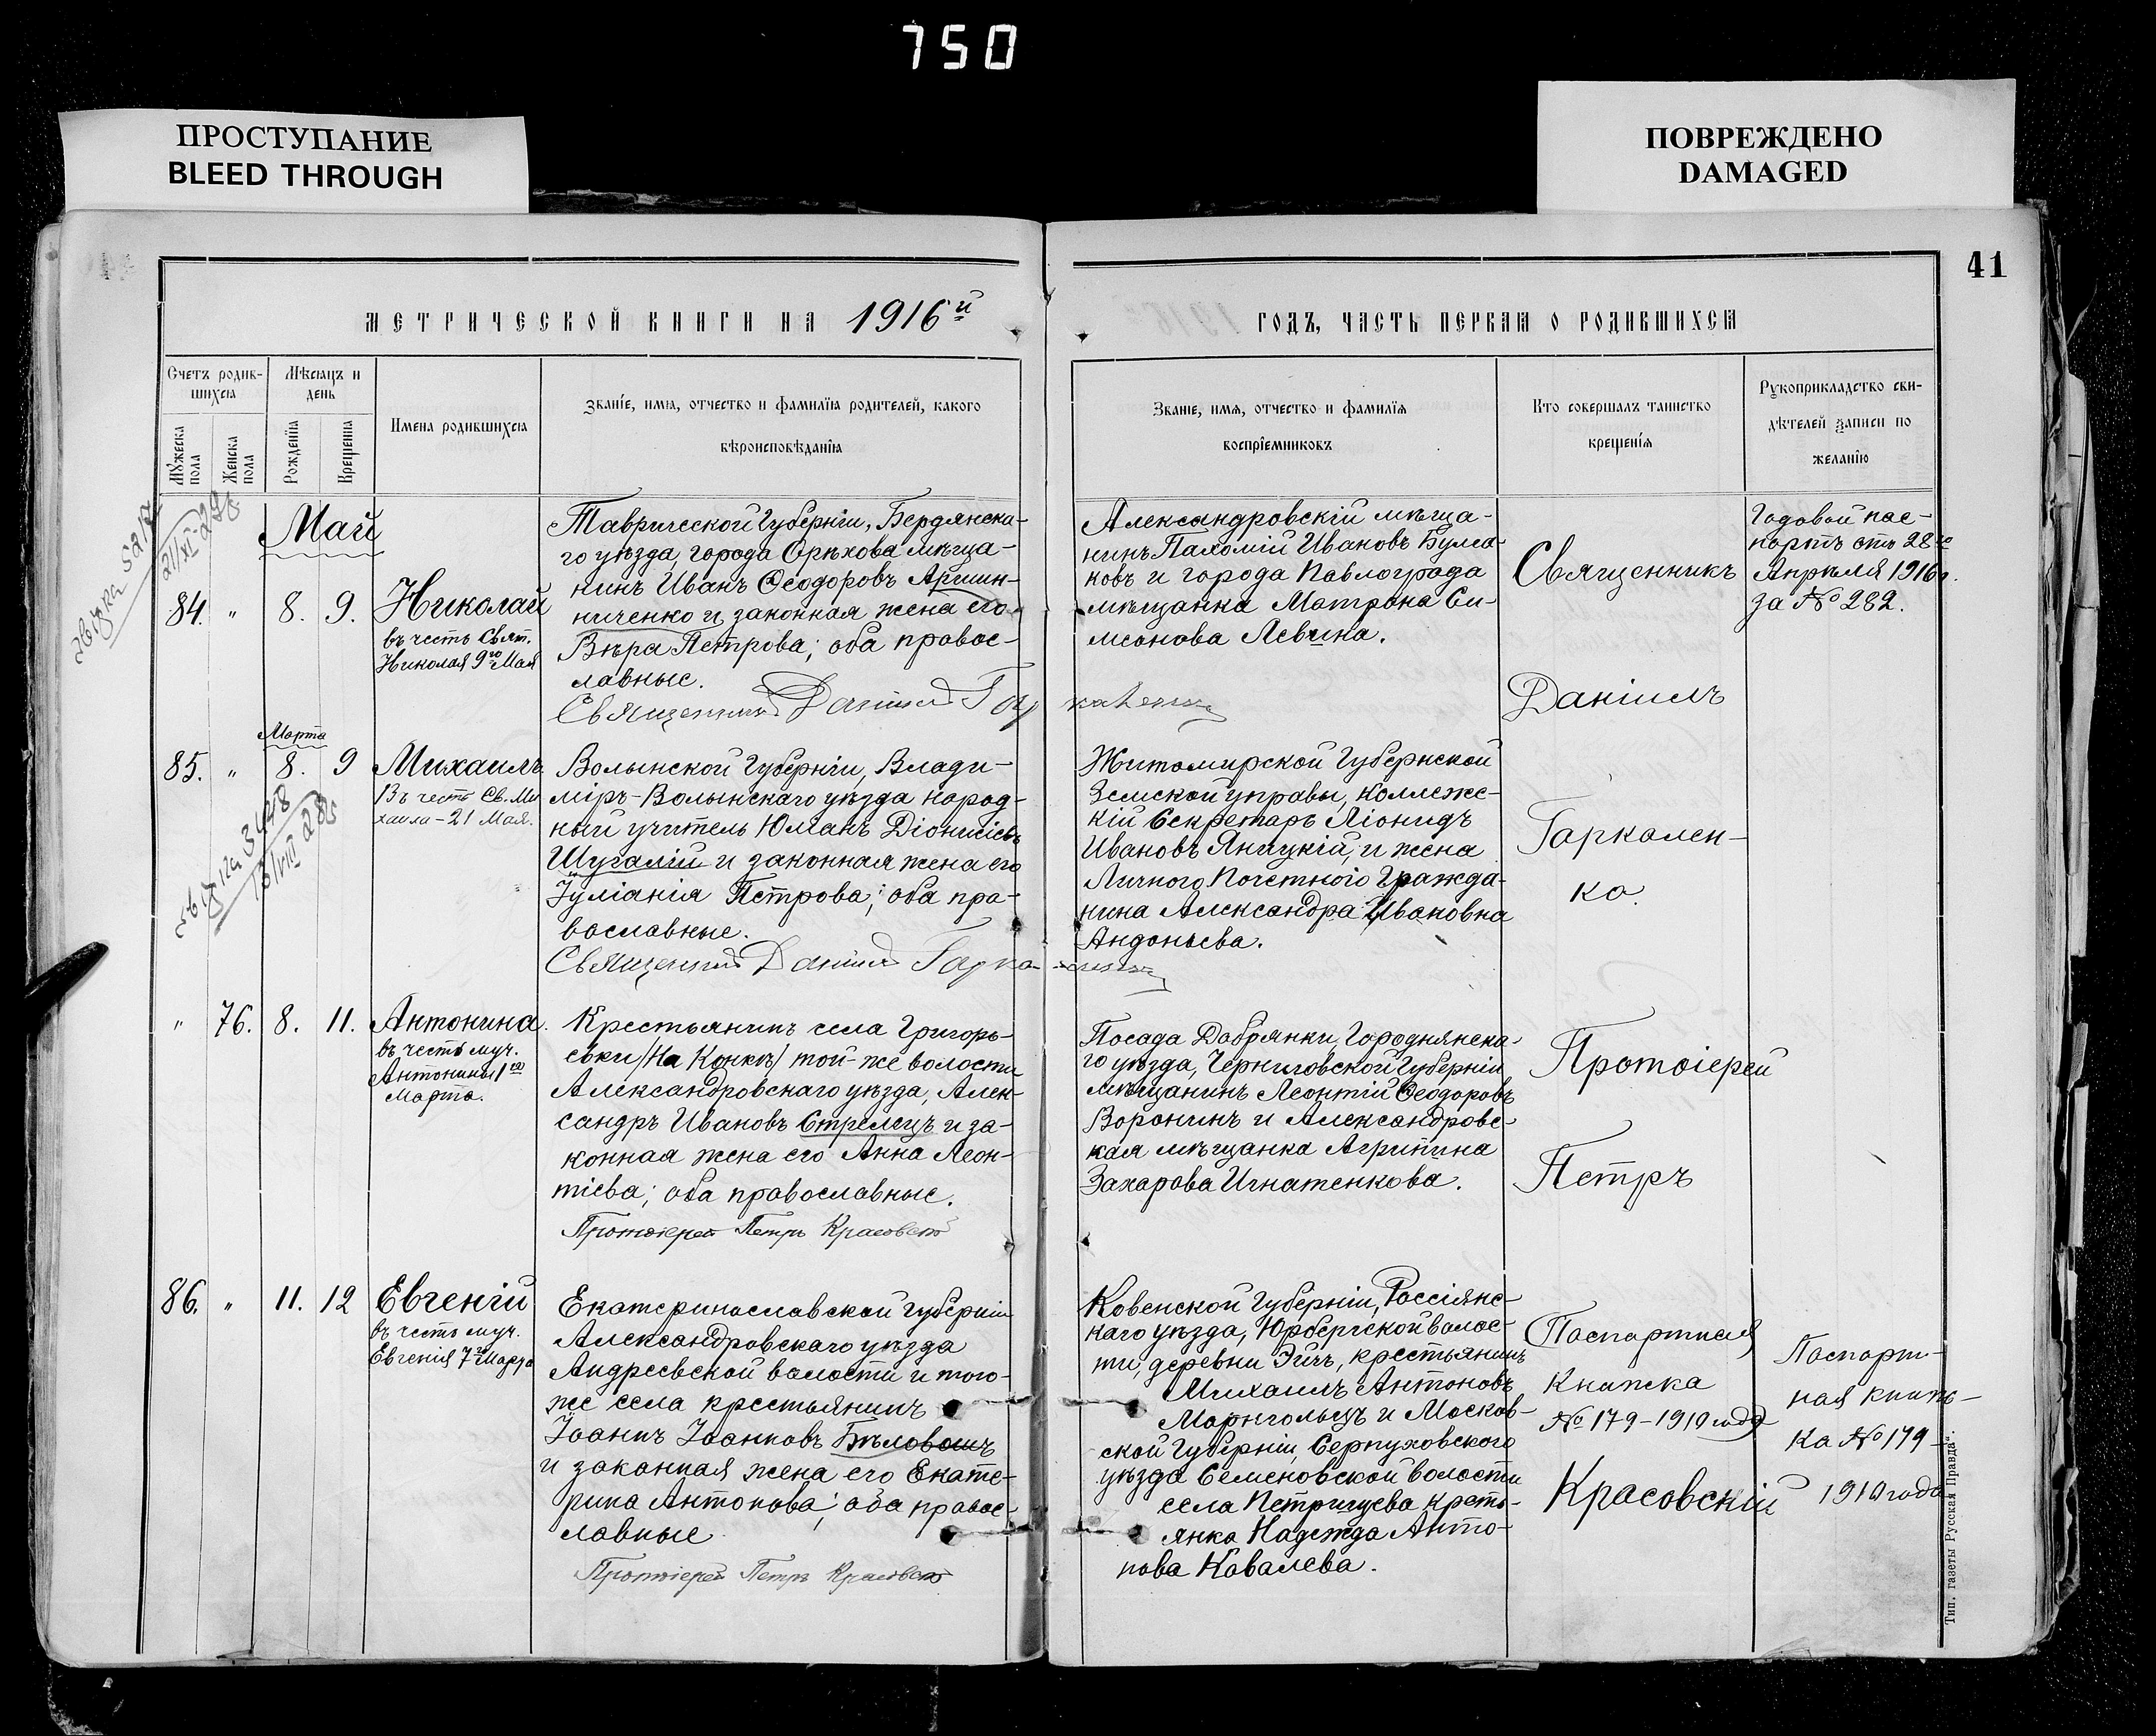 750
ПРОСТУПАНИЕ
BLEED THROUGH
ПОВРЕЖДЕНО
DAMAGED
41
МЕТРИЧЕСКОЙ КНИГИ НА 1916й
ГОДЪ, ЧАСТЬ ПЕРВАЯ О РОДИВШИХСЯ
Счетъ родив-
шихся
Мужеска пола
Женска пола
Мѣсяцъ и
день
Рожденія
Крещенія
Имена родившихся
Званіе, имя, отчество и фамилія родителей, какого
вѣроисповѣданія
Званіе, имя, отчество и фамилія
воспріемниковъ
Кто совершалъ таинство
крещенія
Рукоприкладство сви-
дѣтелей записи по
желанію
Май
84. " 8. 9.
Николай
въ честь Свят.
Николая 9го Мая
Таврической Губерніи, Бердянска-
го уѣзда, города Орѣхова мѣща-
нинъ Иванъ Ѳеодоровъ Аршин-
ниченко и законная жена его
Вѣра Петрова; оба правос-
лавные.
Священникъ Даніилъ Гаркаленко
Александровскій мѣща-
нинъ Пахомій Ивановъ Булга-
ковъ и города Павлограда
мѣщанка Матрона Си-
меонова Левчина.
Священникъ
Даніилъ
Гаркален-
ко.
Годовой пас-
портъ отъ 28го
Апрѣля 1916г.
за № 282.
Марта
85. " 8. 9
Михаилъ
Въ честь Св. Ми
хаила - 21 Мая.
Волынской Губерніи, Влади-
міръ-Волынскаго уѣзда народ-
ный учитель Юліанъ Діонисіевъ
Шугалій и законная жена его
Іуліанія Петрова; оба пра-
вославные.
Священникъ Даніилъ Гаркаленко
Житомирской Губернской
Земской управы, коллежс-
кій Секретарь Ліонидъ
Ивановъ Яницкій, и жена
Личного Почетного Гражда-
нина Александра Ивановна
Андоньева.
" 76. 8. 11.
Антонина.
въ честь муч.
Антонины 1го
Марта.
Крестьянинъ села Григорь-
евки /На Конкѣ/ той-же волости
Александровскаго уѣзда, Алек-
сандръ Ивановъ Стрелецъ и за-
конная жена его Анна Леон-
тіева; оба православные.
Протоіерей Петръ Красовскій
Посада Добрянки, Городнянска-
го уѣзда, Черниговской Губерніи
мѣщанинъ Леонтій Ѳеодоровъ
Воронинъ и Александровс-
кая мѣщанка Агрипина
Захарова Игнатенкова.
Протоіерей
Петръ
86. " 11. 12
Евгеній
въ честь муч.
Евгенія 7го Марта
Екатеринославской Губерніи
Александровскаго уѣзда
Андреевской волости и того-
же села крестьянинъ
Іоаннъ Іоанновъ Бѣловолъ
и законная жена его Екате-
рина Антонова; оба правос-
лавные
Протоіерей Петръ Красовскій
Ковенской Губерніи, Россіянс-
каго уѣзда, Юрбергской волос-
ти, деревни Эйчъ, крестьянинъ
Михаилъ Антоновъ
Моригольцъ и Москов-
ской Губерніи, Серпуховского
уѣзда Семеновской волости
села Петрищева кресть-
янка Надежда Анто-
нова Ковалева.
Паспортная
Книжка
№ 179-1910 года
Красовскій
Паспорт-
ная книж-
ка № 179-
1910 года
Тип. газеты „Русская Правда“.